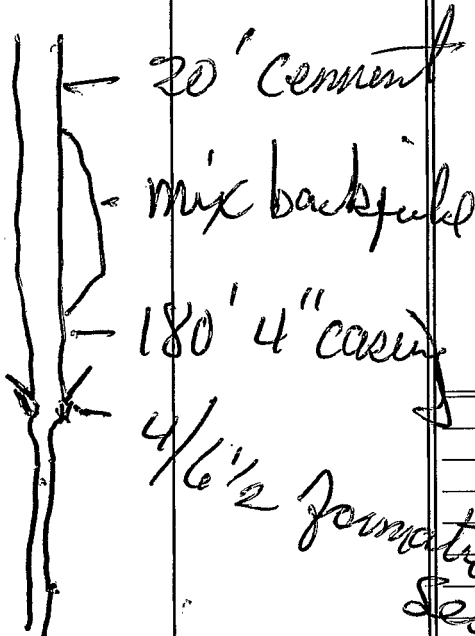 20' cement
mix backfield
180' 4" casing
4/6 1/2 formati
Se